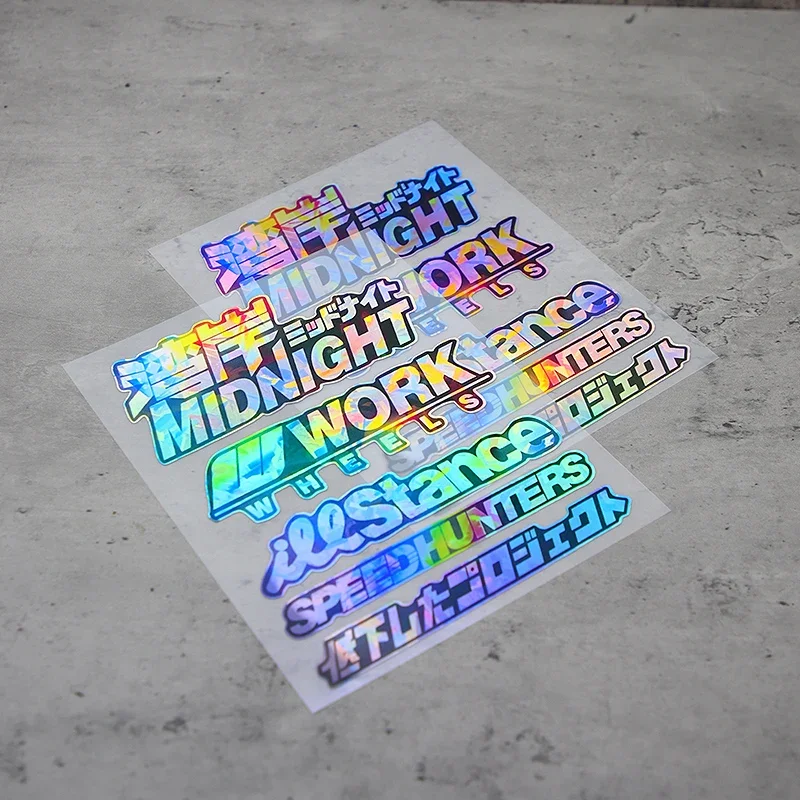 湾岸ミッドナイト
MIDNIGHT
WORK
WHEELS
tance
SPEEDHUNTERS
プロジェクト
湾岸ミッドナイト
MIDNIGHT
WORK
WHEELS
illStance
SPEEDHUNTERS
低下したプロジェクト